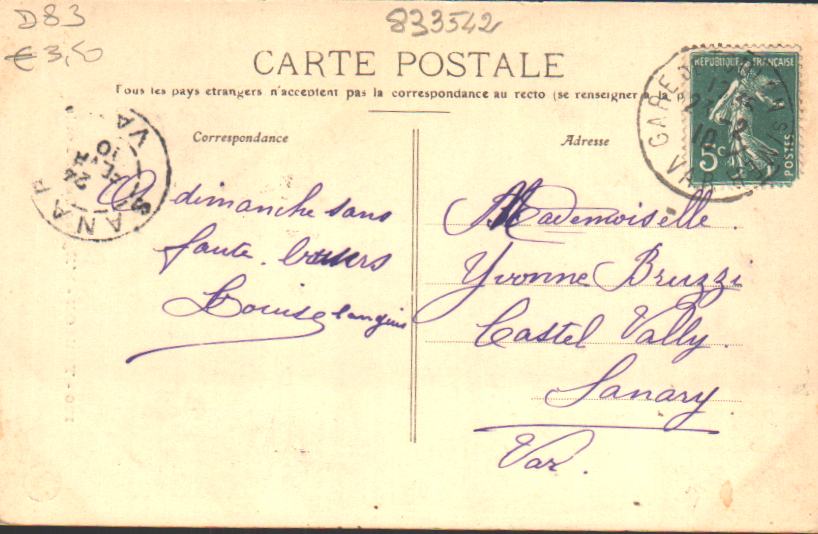 D83
€ 3,50
833542
CARTE POSTALE
Tous les pays étrangers n'acceptent pas la correspondance au recto (se renseigner à la
RÉPUBLIQUE FRANÇAISE
5c
POSTES
GARE DE
VAR
SANAR
VA
24
10
Correspondance
A dimanche sans
faute.
Louise
Adresse
Mademoiselle
Yvonne Bruzzi
Castel Vally.
Sanary
Var.